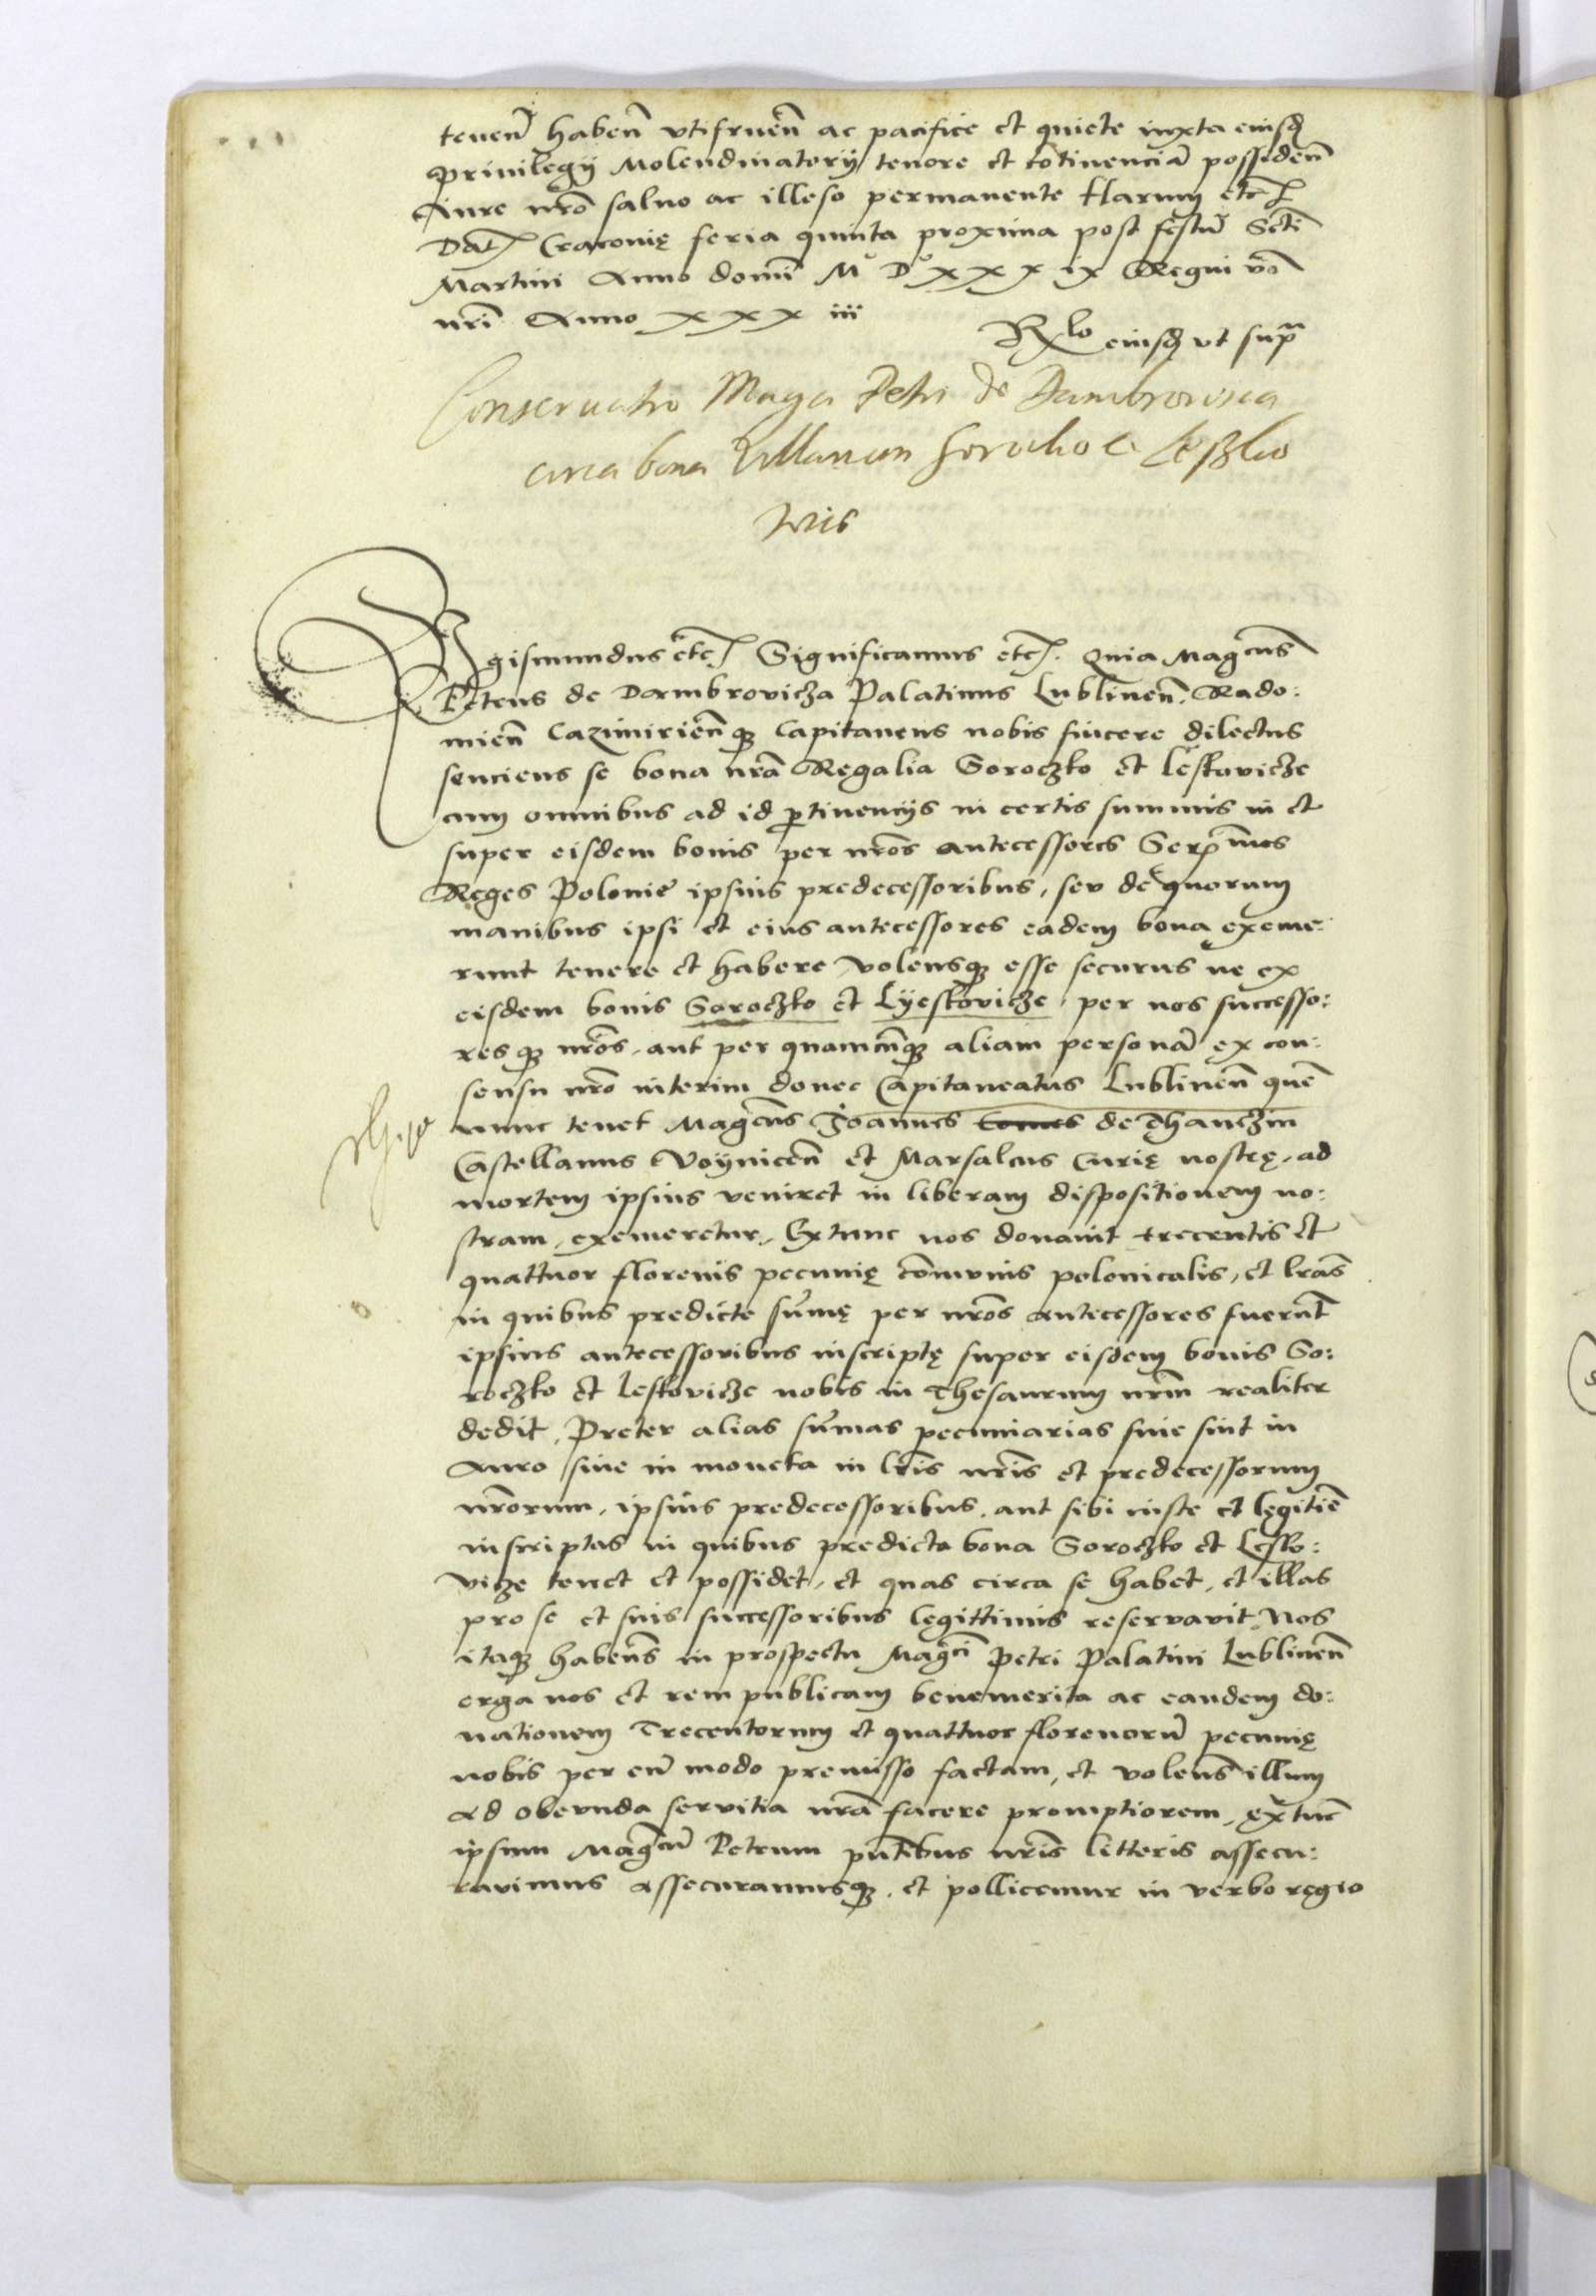 tenen̄ haben̄ vtifruen̄ ac pacifice et quiete iuxta eiusd̄
Priuilegy Molendinatorij tenore et cōtinenciā possiden̄
Iure nr̄o saluo ac illeso permanente Harum etc̄
Dat̄ Cracouię feria quinta proxima post festū Scti
Martini Anno domi M° D° xxxix Regni vō
nri Anno xxxiii
Rlo eiusd̄ vt supra
Conseruatio Magci Petri de Dambrowica
circa bona Villarum Soroczko et Leszko
wice
Sigismundus etc̄ Significamus etc̄. Quia Magcus
Petrus de Dambrovicza Palatinus Lublinen̄. Rado:
mien̄ Cazimirien̄q3 Capitaneus nobis sincere dilectus
senciens se bona nrā Regalia Soroczko et Leskovicze
cum omnibus ad id ptinencijs in certis summis in et
super eisdem bonis per nrōs antecessores Serenmos
Reges Polonie ipsius predecessoribus, seu de quorum
manibus ipsi et eius antecessores eadem bona exeme:
runt tenere et habere volensq3 esse securus ne ex
eisdem bonis Soroczko et Lyeskovicze per nos successo:
resq3 nrōs, aut per quamcūq3 aliam personā ex con:
sensu nrō interim donec Capitaneatus Lublinen̄ quē
nunc tenet Magcus Joannes comes de Thanczin
Castellanus Voynicen̄ et Marsalcus Curię nostrę, ad
mortem ipsius veniret in liberam dispositionem no:
stram, exemeretur, Extunc nos donauit trecentis et
quattuor florenis pecunię cōmunis polonicalis, et lrās
in quibus predicte sūmę per nrōs antecessores fuerūt
ipsius antecessoribus inscriptę super eisdem bonis So:
roczko et Leskovicze nobis in Thesaurum nrm̄ realiter
dedit, Preter alias sūmas pecuniarias siue sint in
Auro siue in moneta in lrīs nrīs et predecessorum
nrōrum, ipsius predecessoribus, aut sibi iuste et legitiē
inscriptas in quibus predicta bona Soroczko et Lesko:
vicze tenet et possidet, et quas circa se habet, et illas
pro se et suis successoribus legittimis reservavit, Nos
itaq3 habens in prospectu Magci Petri Palatini Lublinen̄
erga nos et rem publicam benemerita ac eandem do:
nationem Trecentorum et quattuor florenorū pecunię
nobis per eū modo premisso factam, et volens illum
ad obeunda servitia nrā facere promptiorem, extūc
ipsum Magcū Petrum pn̄tibus nrīs litteris assecu:
ravimus assecuramusq3, et pollicemur in verbo regio